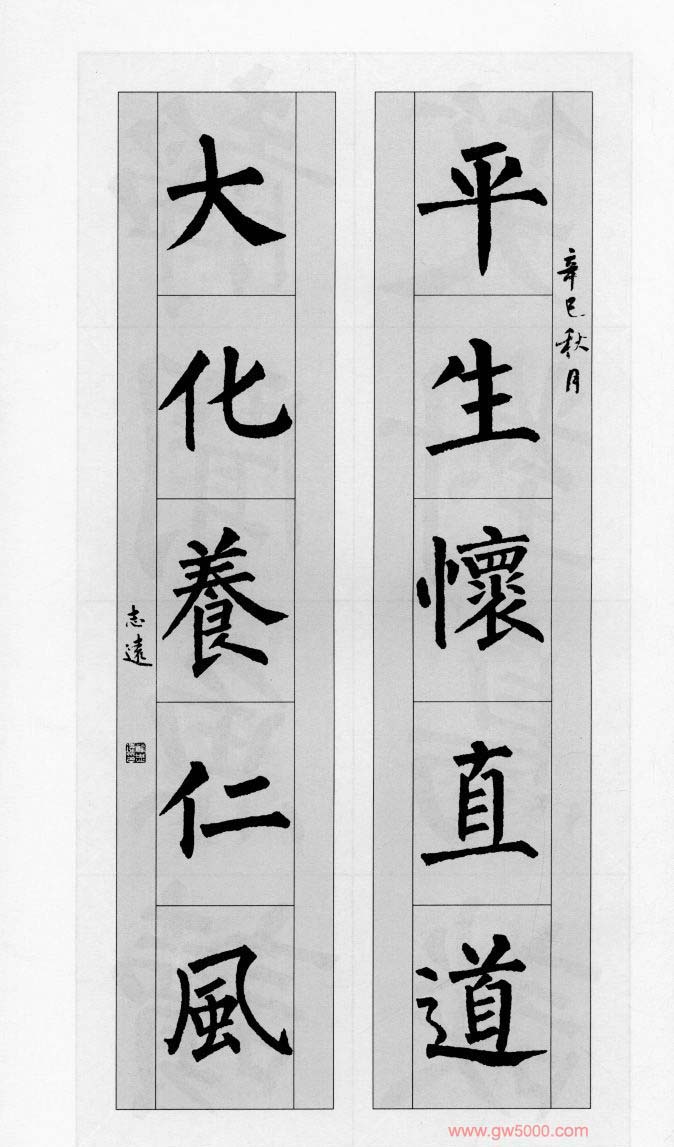 辛巳秋月
平生懷直道
大化養仁風
志遠
www.gw5000.com